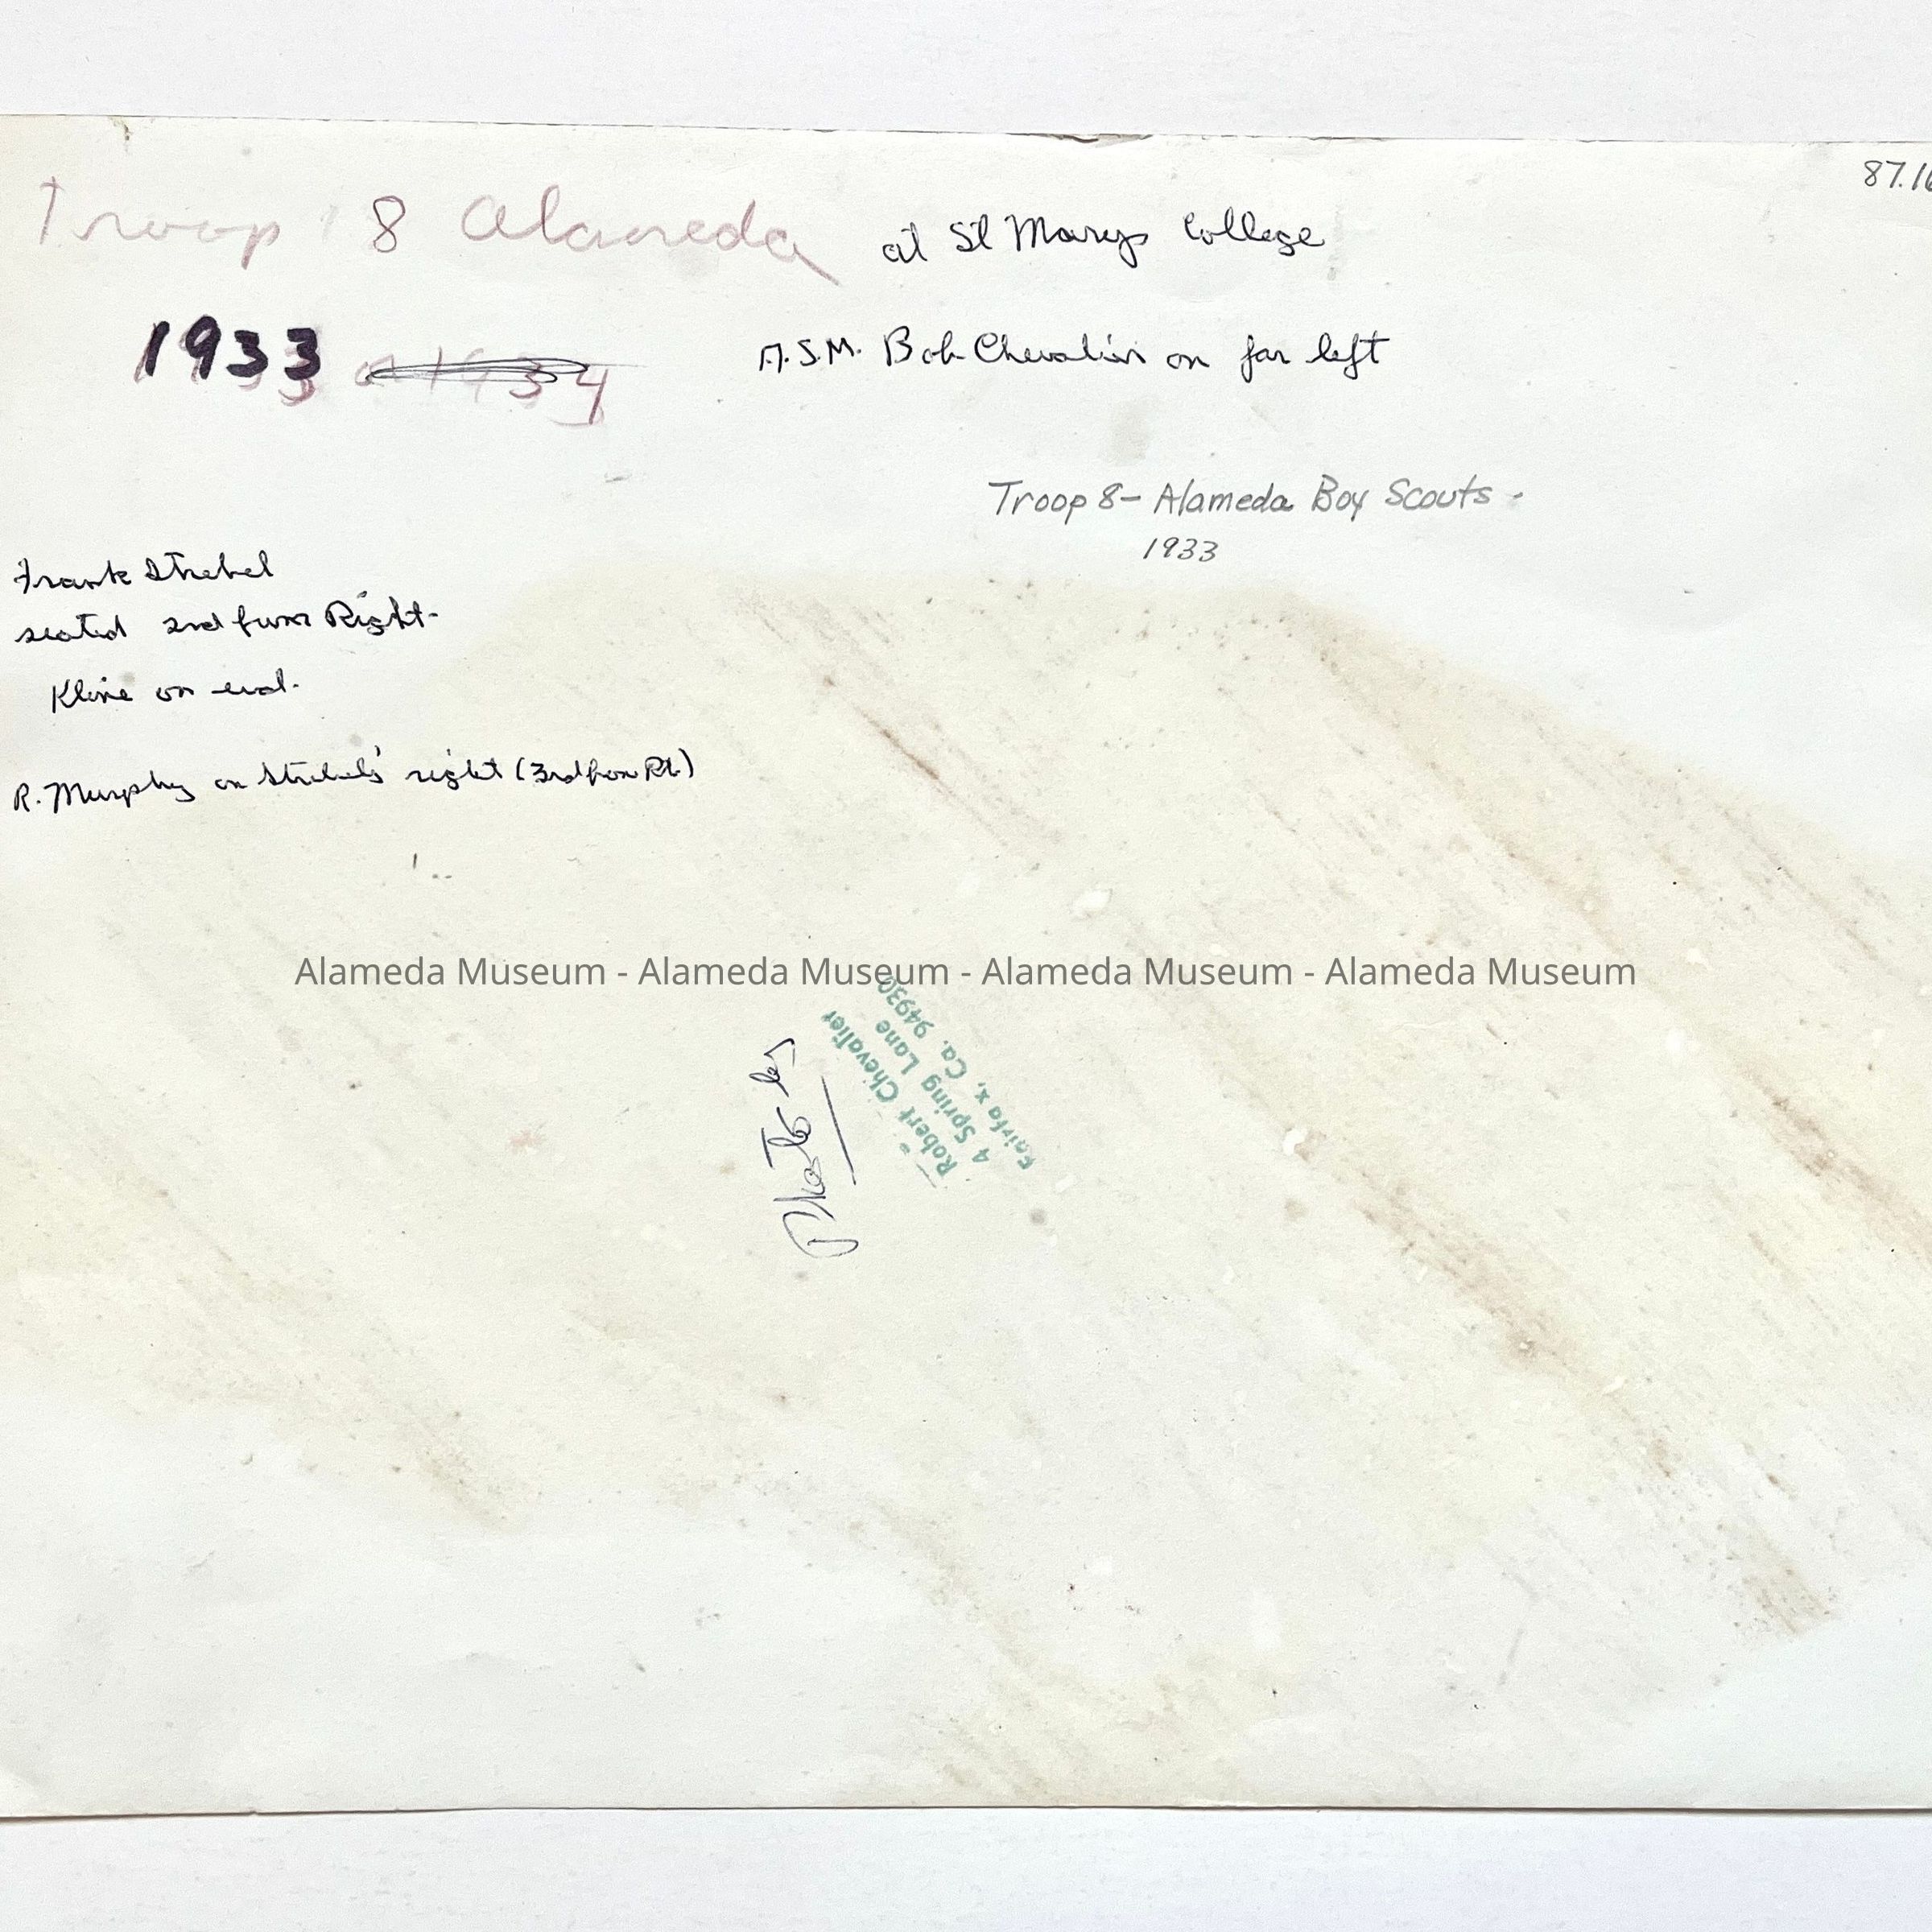 87.16
Troop 8 Alameda at St Marys College
1933 or 1934
A.S.M. Bob Chevalier on far left
Troop 8 - Alameda Boy Scouts -
1933
Frank Strebel
seated 2nd from Right-
Kline on end.
R. Murphy on Strebels' right (3rd from Rt.)
Alameda Museum - Alameda Museum - Alameda Museum - Alameda Museum
Photo by
Robert Chevalier
4 Spring Lane
Fairfax, Ca. 94930